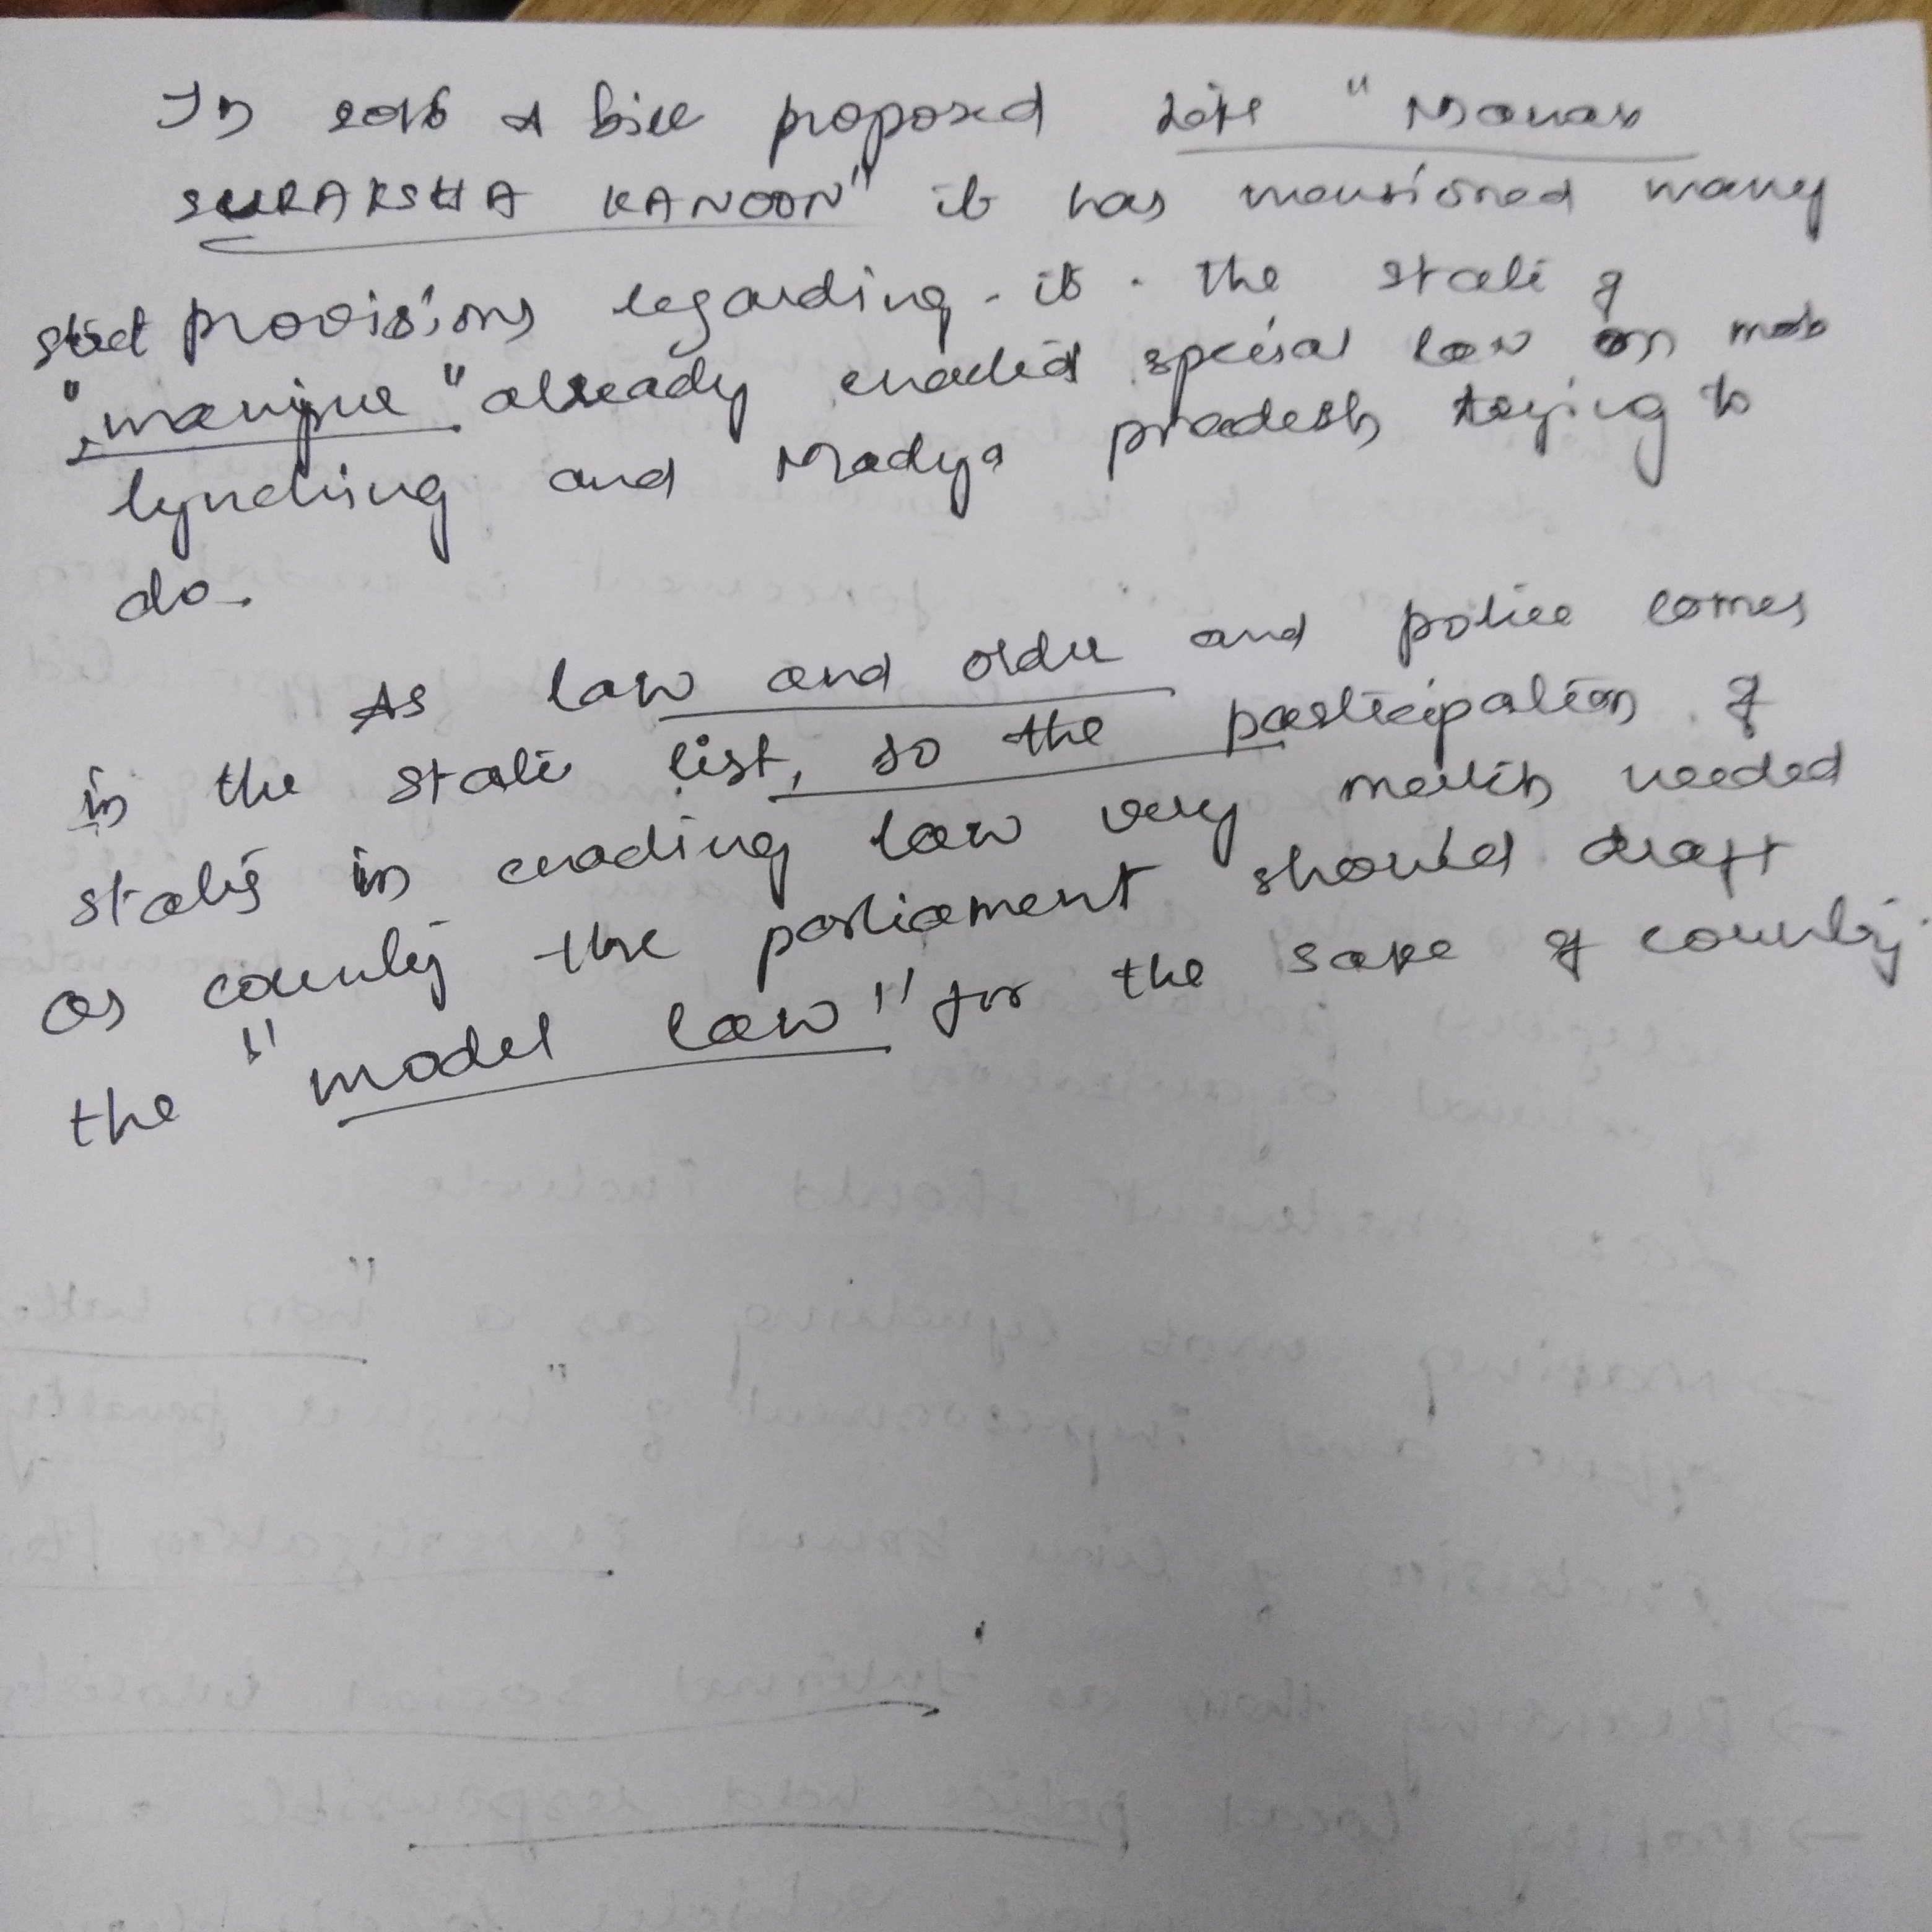 In 2016 a bill proposed like "Manav
SURAKSHA KANOON" it has mentioned many
strict provisions regarding it. the state of
"manipur" already enacted special law on mob
lynching and Madya pradesh trying to
do.
As law and order and police comes
in the state list, so the participation of
states in enacting law very much needed
as country the parliament should draft
the "model law" for the sake of country.